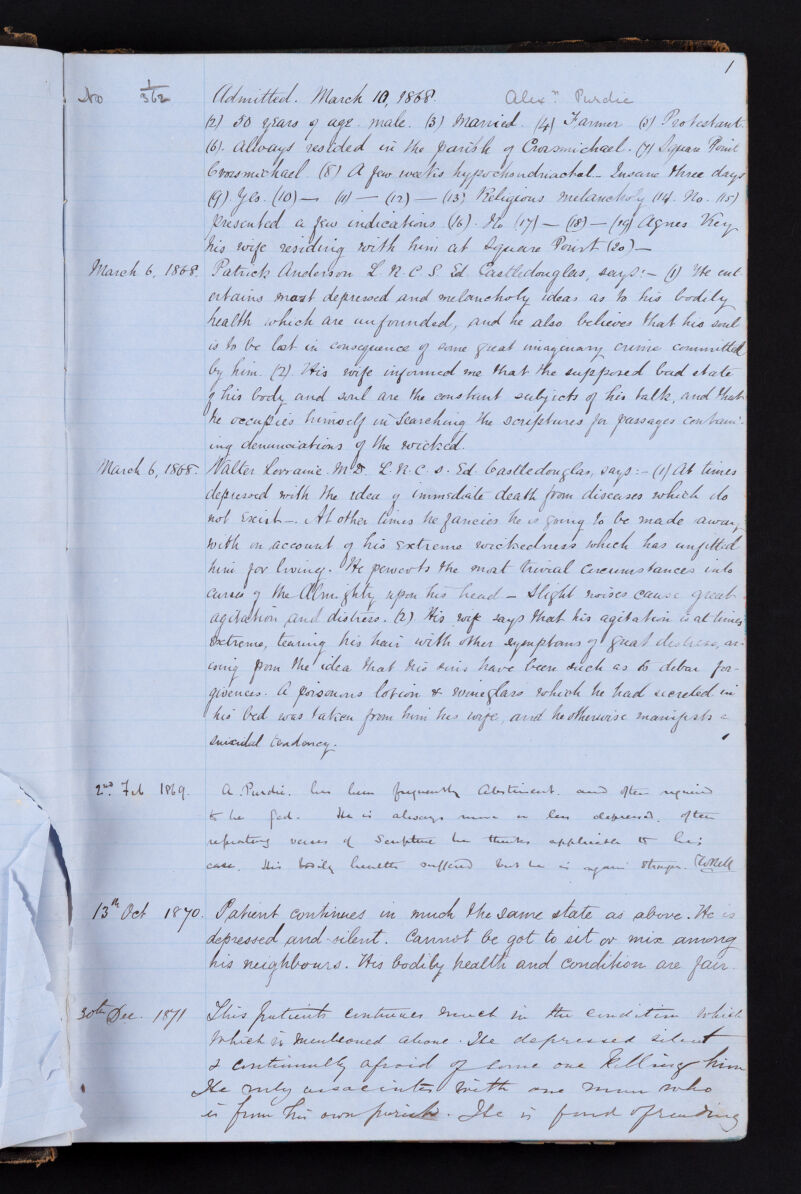 1
No 1/362 Admitted. March 10, 1868. Alexr. Purdie
(2) 50 years of age. male. (3) Married. (4) Farmer (5) Protestant.
(6). Always resided in the parish of Crossmichael. (7) Square Point
Crossmichael (8) A few weeks hypochondriachal - Insane three days
(9). Yes. (10) — (11) — (12) — (13) Religious melancholy (14. No. (15)
presented a few indications. (16). No (17) — (18) — (19) Agnes Key
his wife residing with him at Square Point (20) —
March 6, 1868. Patrick Anderson L. R. C. S. Ed. Castledouglas, says:- (1) He ent
ertains most depressed and melancholy ideas as to his bodily
health which are unfounded, and he also believes that his soul
is to be lost in consequence of some great imaginary crime committed
by him. (2) His wife informed me that the supposed bad state
of his body and soul are the constant subjects of his talk, and that
he occupies himself in searching the scriptures for passages contain-
ing denunciations of the wicked.
March 6, 1868. Walter Lorraine. M.D. L. R. C. S. Ed Castledouglas, says:- (1) At times
depressed with the idea of immediate death from diseases which do
not exist -. At other times he fancies he is going to be made away
with on account of his extreme wickedness which has unfitted
him for living. He perverts the most trivial circumstances into
curses of the Almighty upon his head - Slight noises cause great
agitation and distress. (2) His wife says that his agitation is at times
extreme, tearing his hair with other symptoms of great distress, ar-
ising from the idea that his sins have been such as to debar for-
giveness. A poisonous lotion & wineglass which he had secreted in
his bed was taken from him his wife, and he otherwise manifests a
suicidal tendency.
2nd. Feb 1869. A. Purdie. has been frequently Abstinent. and often required
to be fed. He is always more or less depressed. often
repeating verses of Scripture he thinks applicable to his
case. His bodily health suffered but he is again stronger.
13th Oct 1870. Patient continues in much the same state as above. He is
depressed and silent. Cannot be got to sit or mix among
his neighbours. His bodily health and condition are fair.
30th Dec. 1871 This patient continues much in the condition which
which is mentioned above. He depressed silent
& continually afraid of some one killing him
He only associates with one man who
is from his own parish. He is fond of reading